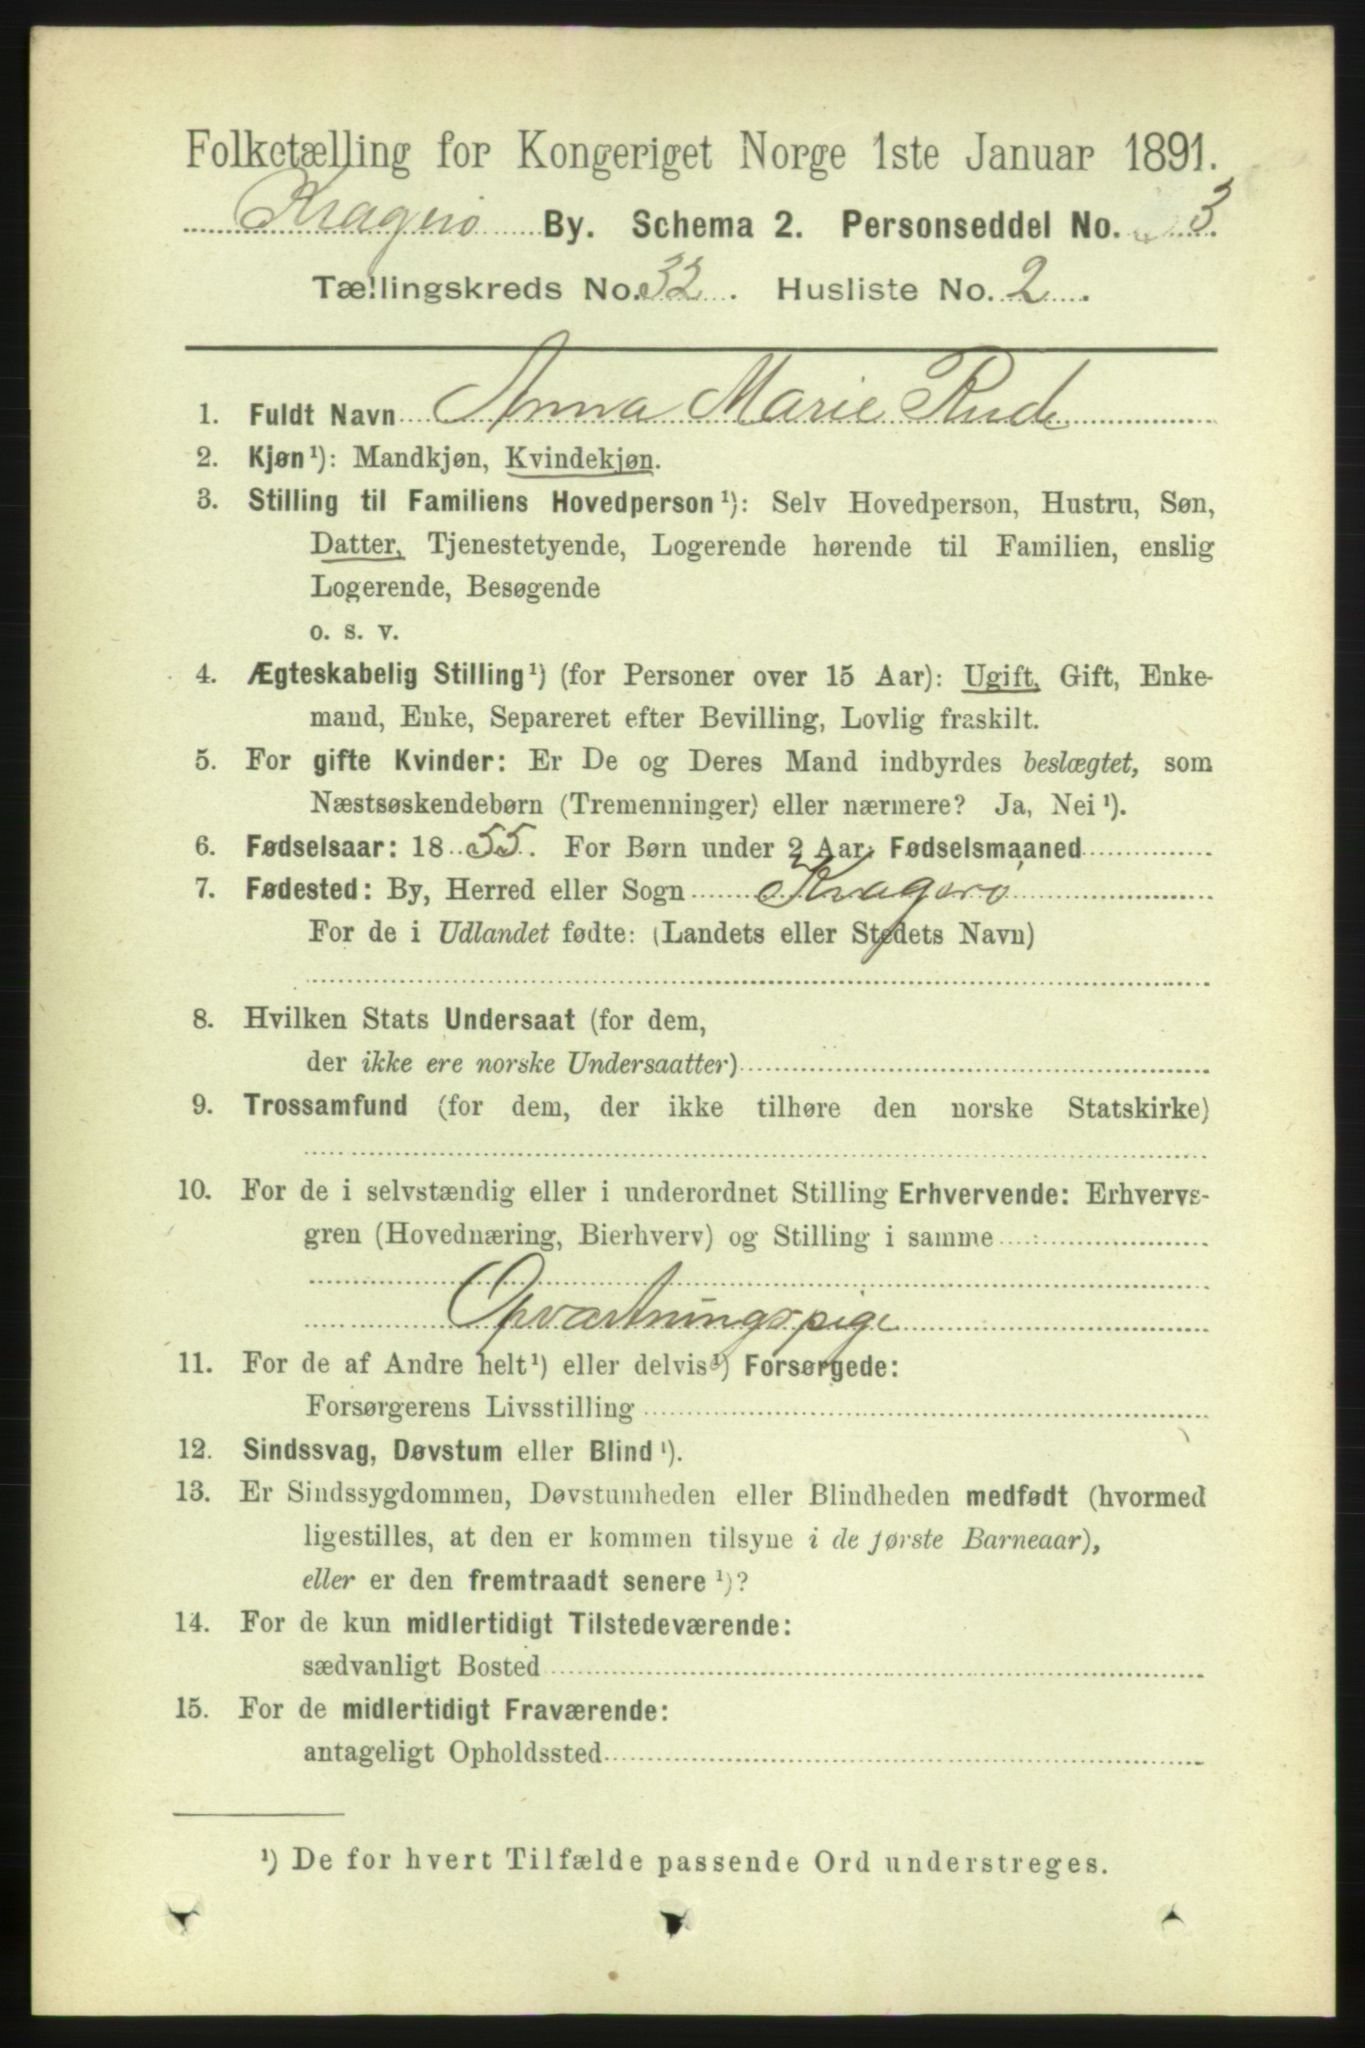 Folketælling for Kongeriget Norge 1ste Januar 1891.
Kragerø By. Schema 2. Personseddel No. 3.
Tællingskreds No. 32. Husliste No. 2.
1. Fuldt Navn Anna Marie Rud
2. Kjøn¹): Mandkjøn, Kvindekjøn.
3. Stilling til Familiens Hovedperson¹): Selv Hovedperson, Hustru, Søn,
Datter, Tjenestetyende, Logerende hørende til Familien, enslig
Logerende, Besøgende
o. s. v.
4. Ægteskabelig Stilling¹) (for Personer over 15 Aar): Ugift, Gift, Enke-
mand, Enke, Separeret efter Bevilling, Lovlig fraskilt.
5. For gifte Kvinder: Er De og Deres Mand indbyrdes beslægtet, som
Næstsøskendebørn (Tremenninger) eller nærmere? Ja, Nei¹).
6. Fødselsaar: 1855. For Børn under 2 Aar: Fødselsmaaned
7. Fødested: By, Herred eller Sogn Kragerø
For de i Udlandet fødte: (Landets eller Stedets Navn)
8. Hvilken Stats Undersaat (for dem,
der ikke ere norske Undersaatter)
9. Trossamfund (for dem, der ikke tilhøre den norske Statskirke)
10. For de i selvstændig eller i underordnet Stilling Erhvervende: Erhvervs-
gren (Hovednæring, Bierhverv) og Stilling i samme
Opvartningspige
11. For de af Andre helt¹) eller delvis¹) Forsørgede:
Forsørgerens Livsstilling
12. Sindssvag, Døvstum eller Blind¹).
13. Er Sindssygdommen, Døvstumheden eller Blindheden medfødt (hvormed
ligestilles, at den er kommen tilsyne i de første Barneaar),
eller er den fremtraadt senere¹)?
14. For de kun midlertidigt Tilstedeværende:
sædvanligt Bosted
15. For de midlertidigt Fraværende:
antageligt Opholdssted
¹) De for hvert Tilfælde passende Ord understreges.